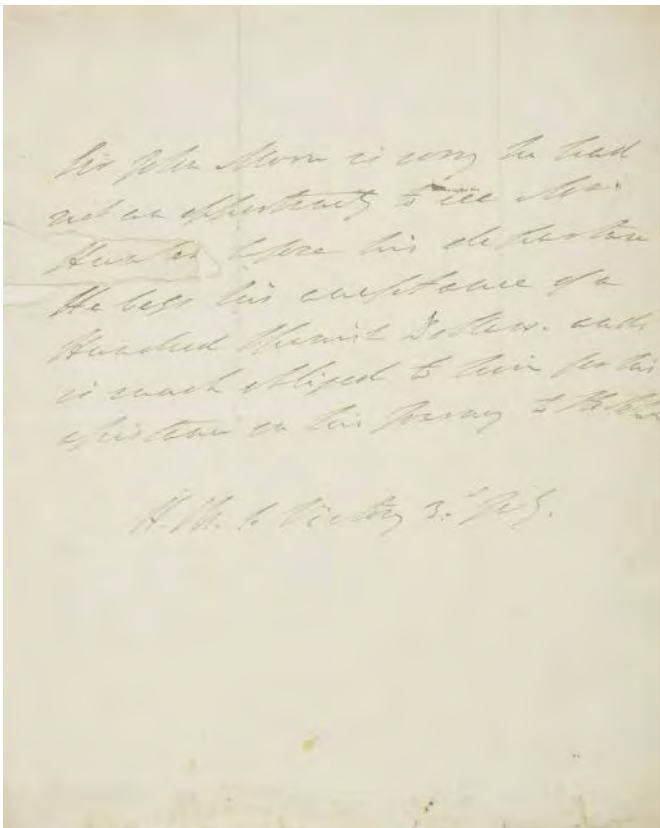 Sir John Moore is sorry he had
not an opportunity to see Mr.
Hunter before his departure
He begs his acceptance of a
Hundred Spanish Dollars. and
is much obliged to him for his
assistance on his Journey to
H.M.S. Victory 3.d July.